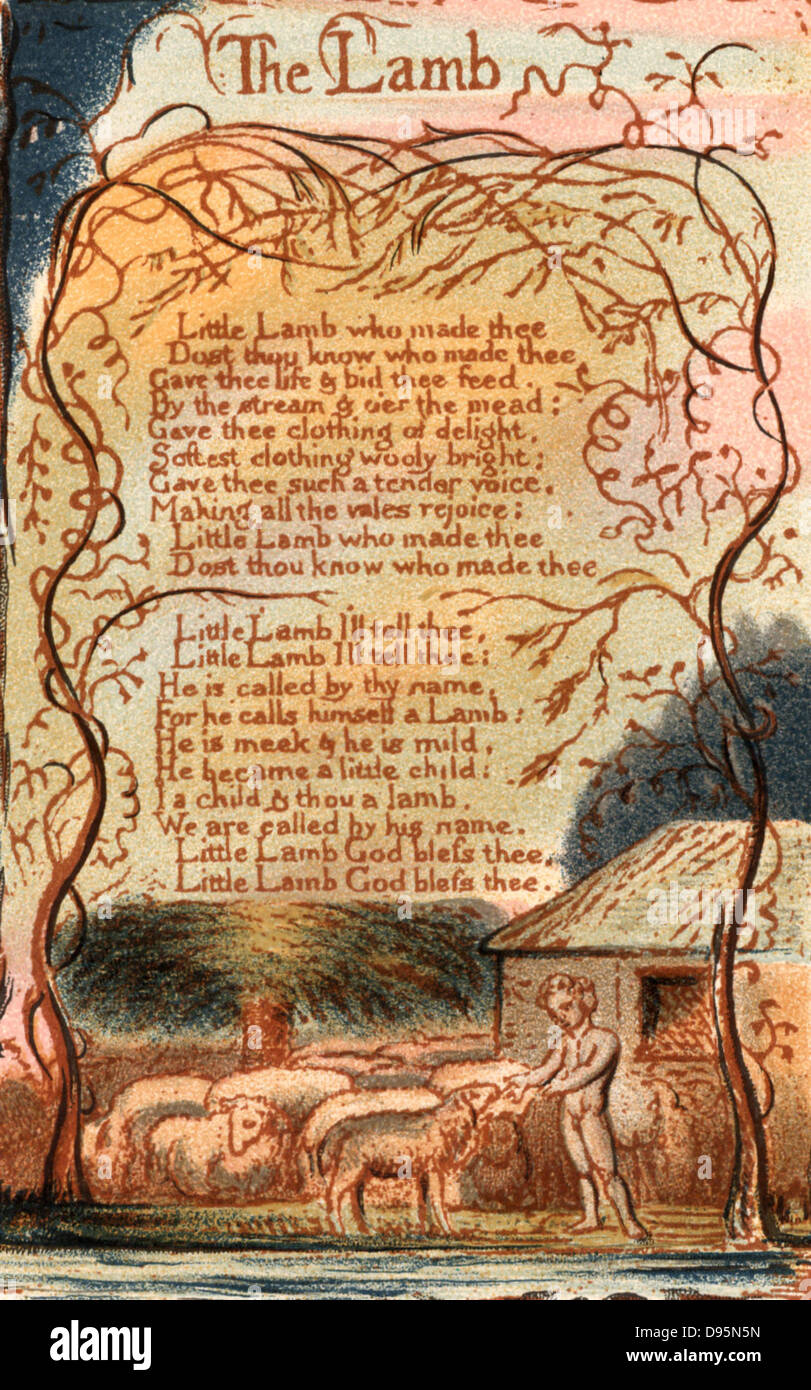 The Lamb
Little Lamb who made thee
Dost thou know who made thee
Gave thee life & bid thee feed.
By the stream & o'er the mead;
Gave thee clothing of delight,
Softest clothing wooly bright;
Gave thee such a tender voice,
Making all the vales rejoice;
Little Lamb who made thee
Dost thou know who made thee
Little Lamb I'll tell thee,
Little Lamb I'll tell thee;
He is called by thy name,
For he calls himself a Lamb:
He is meek & he is mild,
He became a little child:
I a child & thou a lamb,
We are called by his name.
Little Lamb God bleſs thee,
Little Lamb God bleſs thee.
alamy
alamy
alamy
Image ID: D95N5N
www.alamy.com